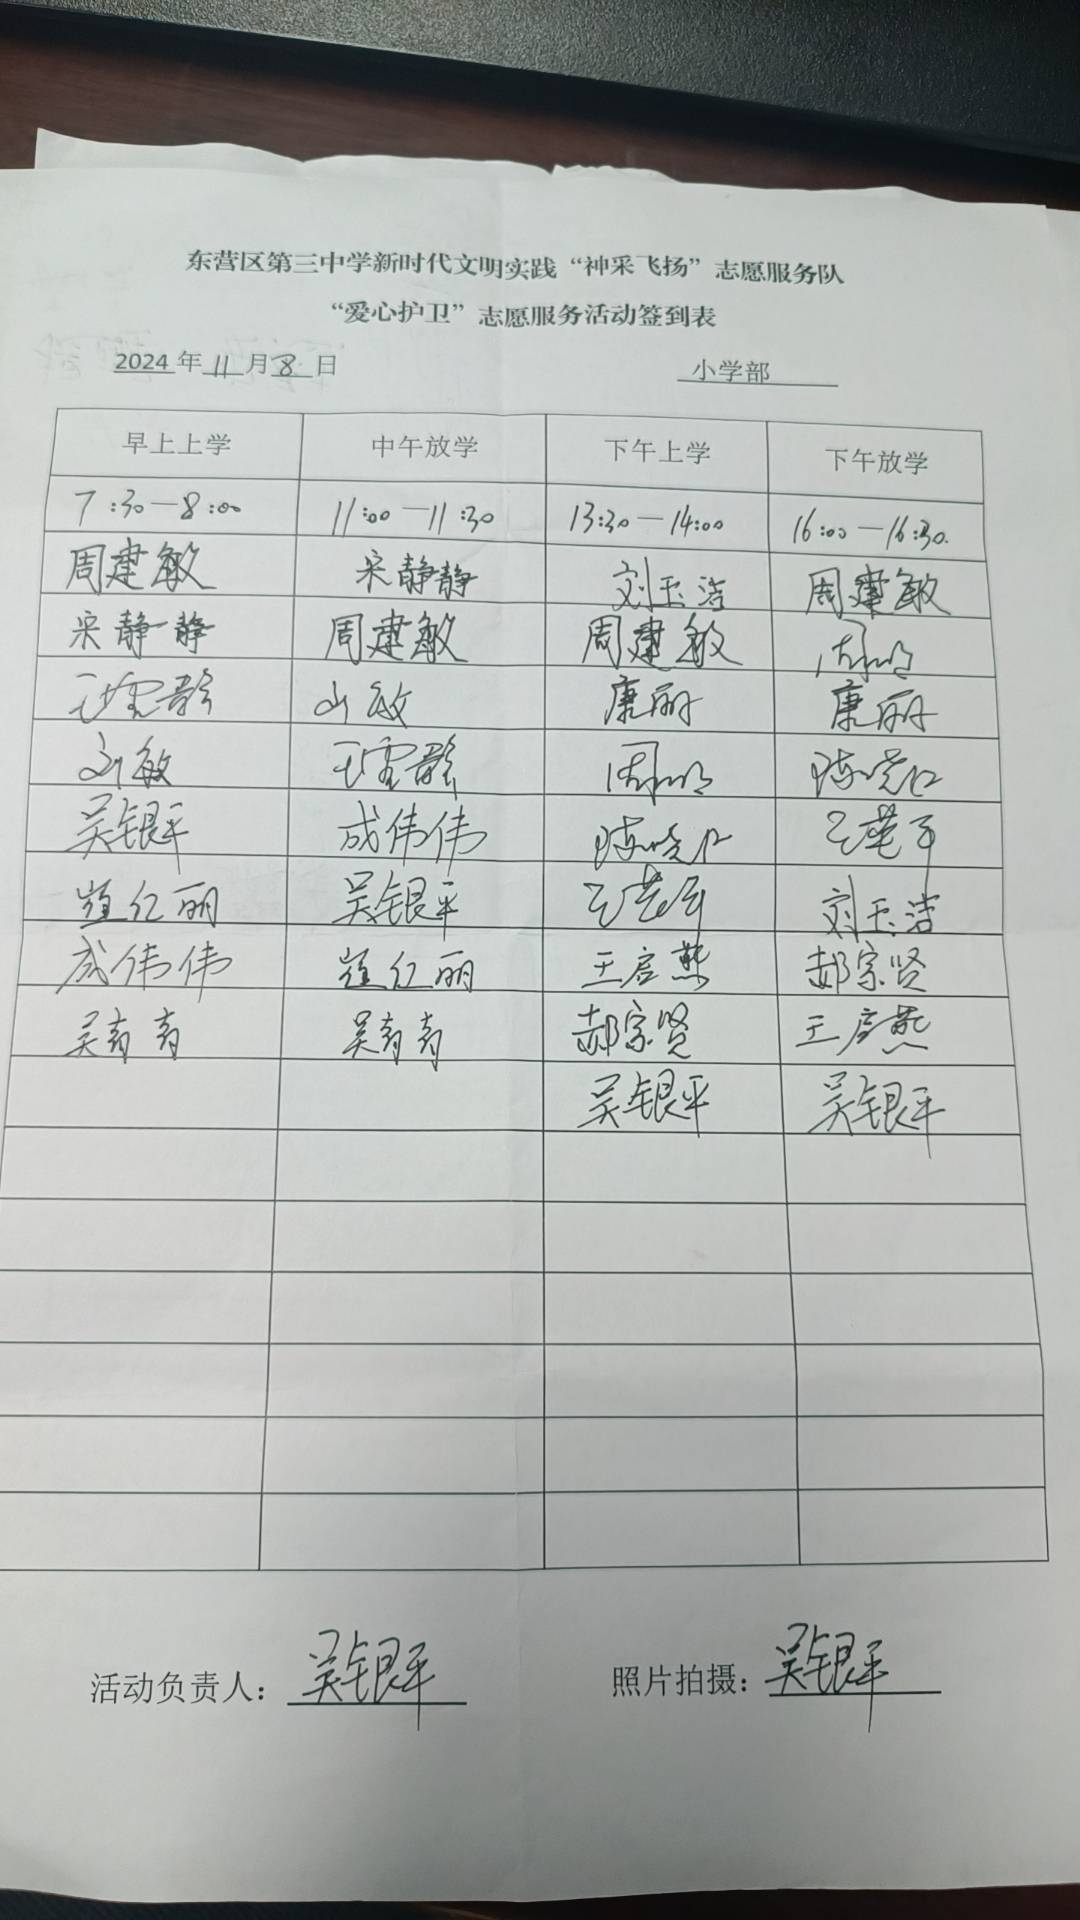 东营区第三中学新时代文明实践“神采飞扬”志愿服务队
“爱心护卫”志愿服务活动签到表
2024 年 11 月 8 日 小学部
早上上学 中午放学 下午上学 下午放学
7:30—8:00 11:00—11:30 13:30—14:00 16:00—16:30.
周建敏 宋静静 刘玉洁 周建敏
宋静静 周建敏 周建敏
刘敏 康丽 康丽
刘敏 陈晓仁
吴银平 成伟伟 陈晓仁
崔红丽 吴银平 刘玉洁
成伟伟 崔红丽 王启燕 郝宗贤
吴青青 吴青青 郝宗贤 王启燕
吴银平 吴银平
活动负责人：吴银平 照片拍摄：吴银平